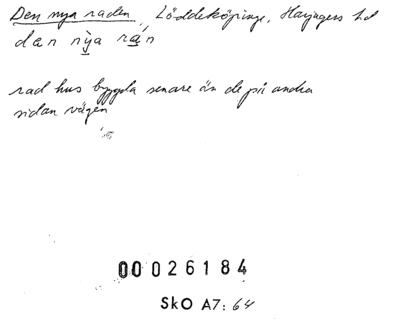 Den nya raden, Löddeköpinge, Harjagers hd
dan nỳa rán
rad hus byggda senare än de på andra
sidan vägen
00026184
SkO A7:64